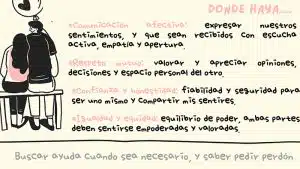 DONDE HAYA....
*Comunicación afectiva: expresar nuestros
sentimientos, y que sean recibidos con escucha
activa, empatía y apertura.
*Respeto mutuo: valorar y apreciar opiniones,
decisiones y espacio personal del otro.
*Confianza y honestidad: fiabilidad y seguridad para
ser uno mismo y compartir mis sentires.
*Igualdad y equidad: equilibrio de poder, ambas partes
deben sentirse empoderadas y valoradas.
Buscar ayuda cuando sea necesario, y saber pedir perdón